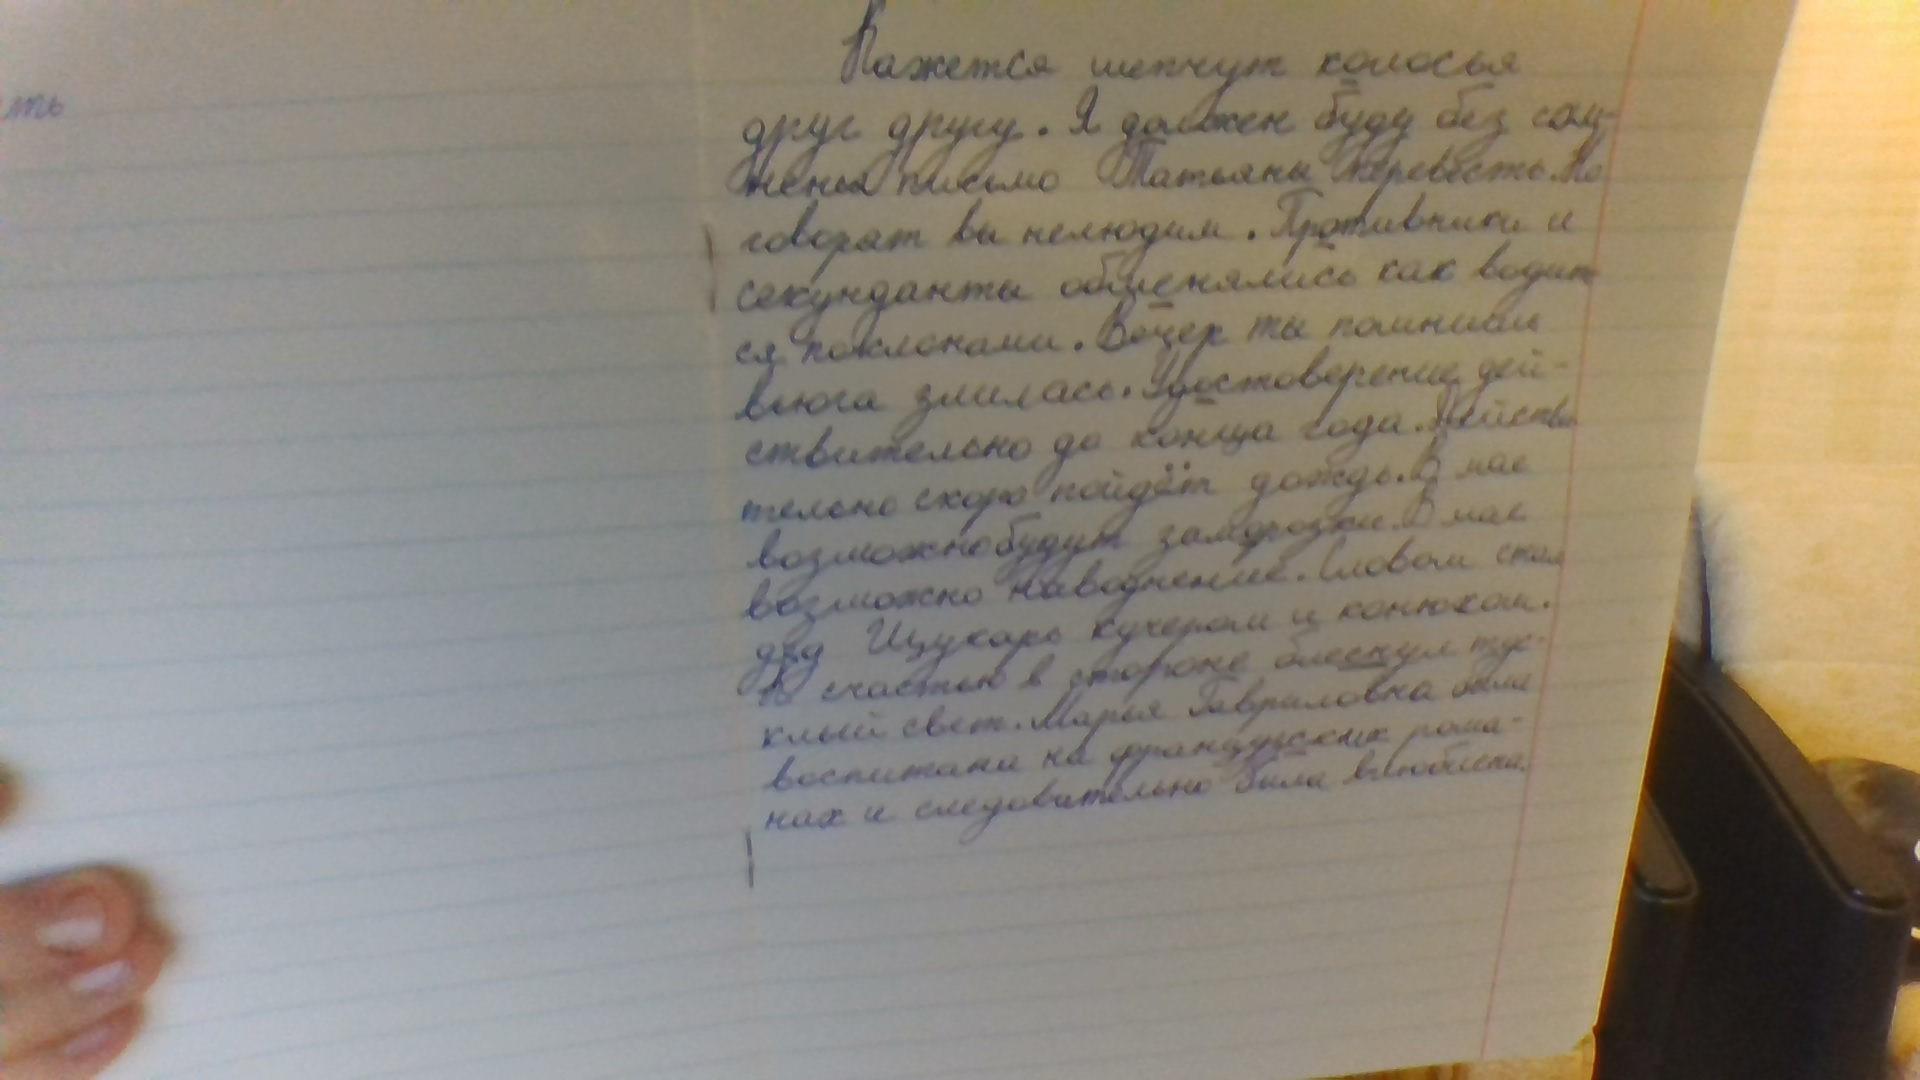 ть
Кажется шепчут колосья
друг другу. Я должен буду без сом-
ненья письмо Татьяны перевесть. Но
говорят вы нелюдим. Противники и
секунданты обменялись как водит
ся поклонами. Вечер ты помнишь
вьюга злилась. Удостоверение дей-
ствительно до конца года. Действи
тельно скоро пойдёт дождь. В мае
возможно будут заморозки. В мае
возможно наводнение. Словом стал
дед Щукарь кучером и конюхом.
К счастью в стороне блеснул тус-
клый свет. Марья Гавриловна была
воспитана на французских рома-
нах и следовательно была влюблена.